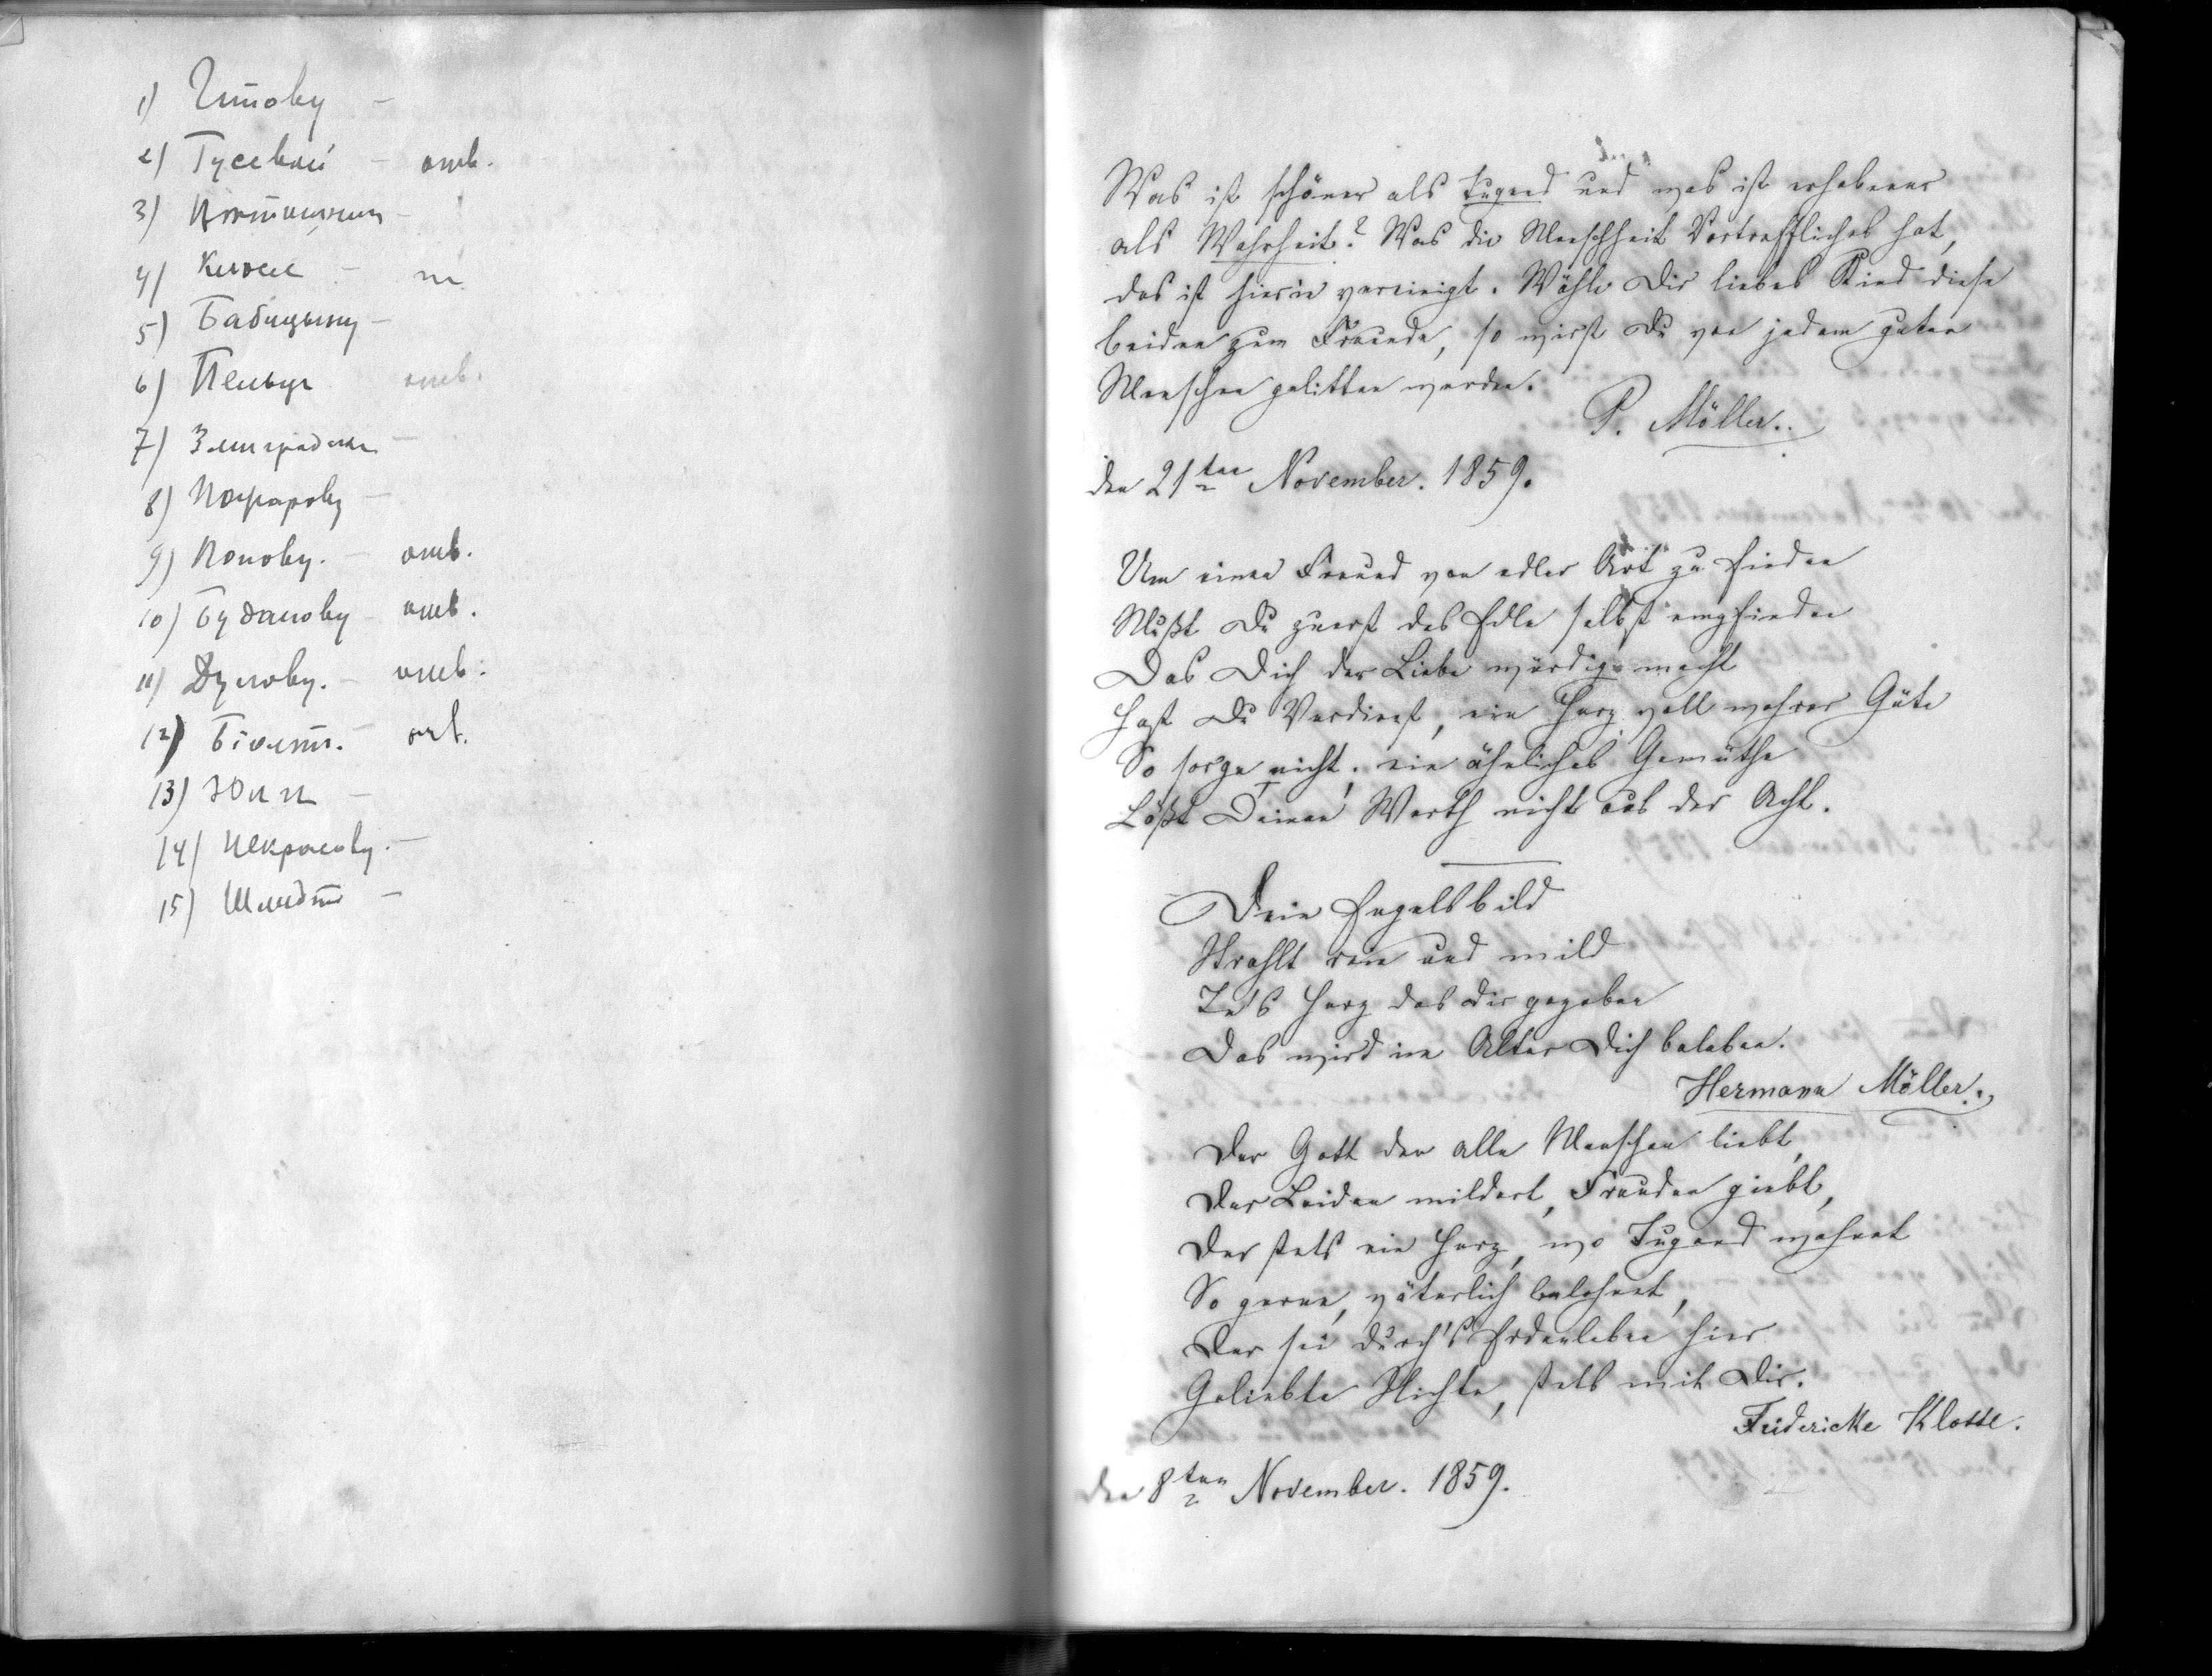 1) Титову -
2) Гусевой - отв.
3)
4) Клюге -
5) Бабицыну -
6) отв.
7)
8) Пожарову -
9) Попову. - отв.
10) Буданову - отв.
11) Дулову. - отв.
12)
13) Юнг -
14) Некрасову. -
15) Шмидт -
Was ist schöner als Tugend und was ist erhabener
als Wahrheit? Was die Menschheit Vortreffliches hat,
das ist hierin vereinigt. Wähle Dir liebes Kind diese
beiden zum Freunde, so wirst Du von jedem guten
Menschen gelitten werden.
P. Möller.
den 21ten November. 1859.
Um einen Freund von edler Art zu finden
Mußt Du zuerst das Edle selbst empfinden
Das Dich der Liebe würdig macht
Hast Du Verdienst, ein Herz voll wahrer Güte
So sorge nicht; ein ähnliches Gemüthe
Läßt Deinen Werth nicht aus der Acht.
Dein Engelsbild
Strahlt rein und mild
In's Herz das dir gegeben
Das wird im Alter Dich beleben.
Hermann Möller.
Der Gott der alle Menschen liebt,
Der Leiden mildert, Freuden giebt,
Der stets ein Herz, wo Tugend wohnet
So gerne, väterlich belohnet,
Der sei durch's Erdenleben hier
Geliebte Nichte, stets mit Dir.
Friedericke Klosse.
den 8ten November. 1859.